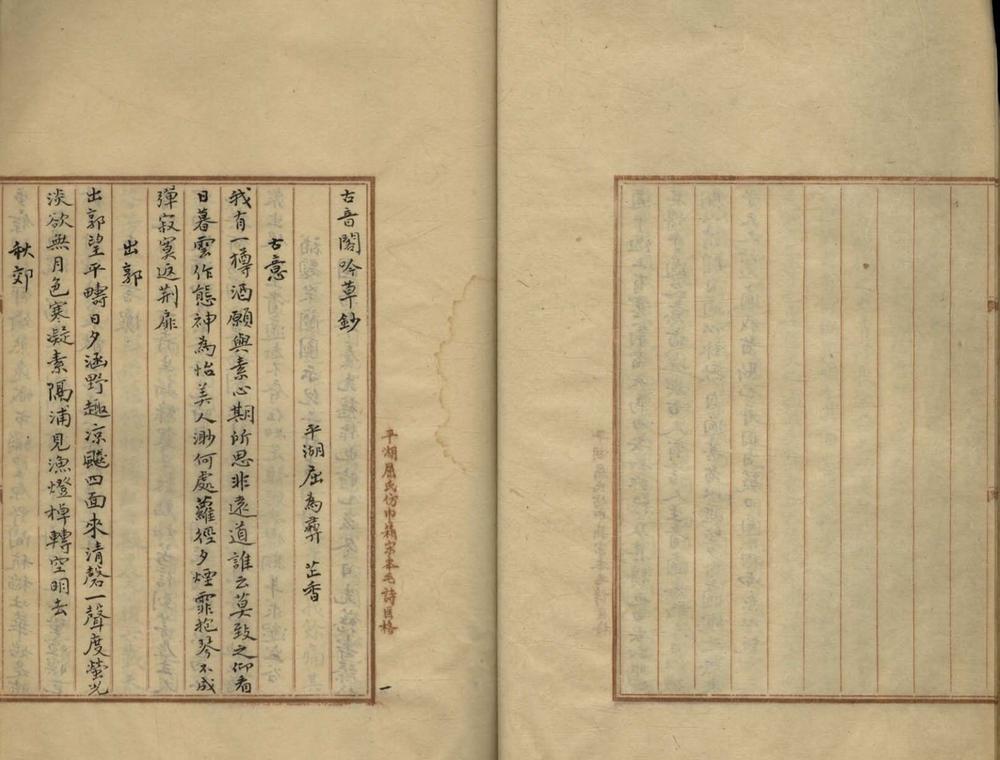 古音閣吟草鈔
平湖屈為彝 芷香
古意
我有一樽酒願與素心期所思非遠道誰云莫致之仰看
日暮雲作態神為怡美人渺何處蘿徑夕煙霏抱琴不成
彈寂寞返荆扉
出郭
出郭望平疇日夕涵野趣凉颸四面來清磬一聲度螢光
淡欲無月色寒凝素隔浦見漁燈棹轉空明去
秋郊
平湖屈氏仿巾箱宋本毛詩匡格
一